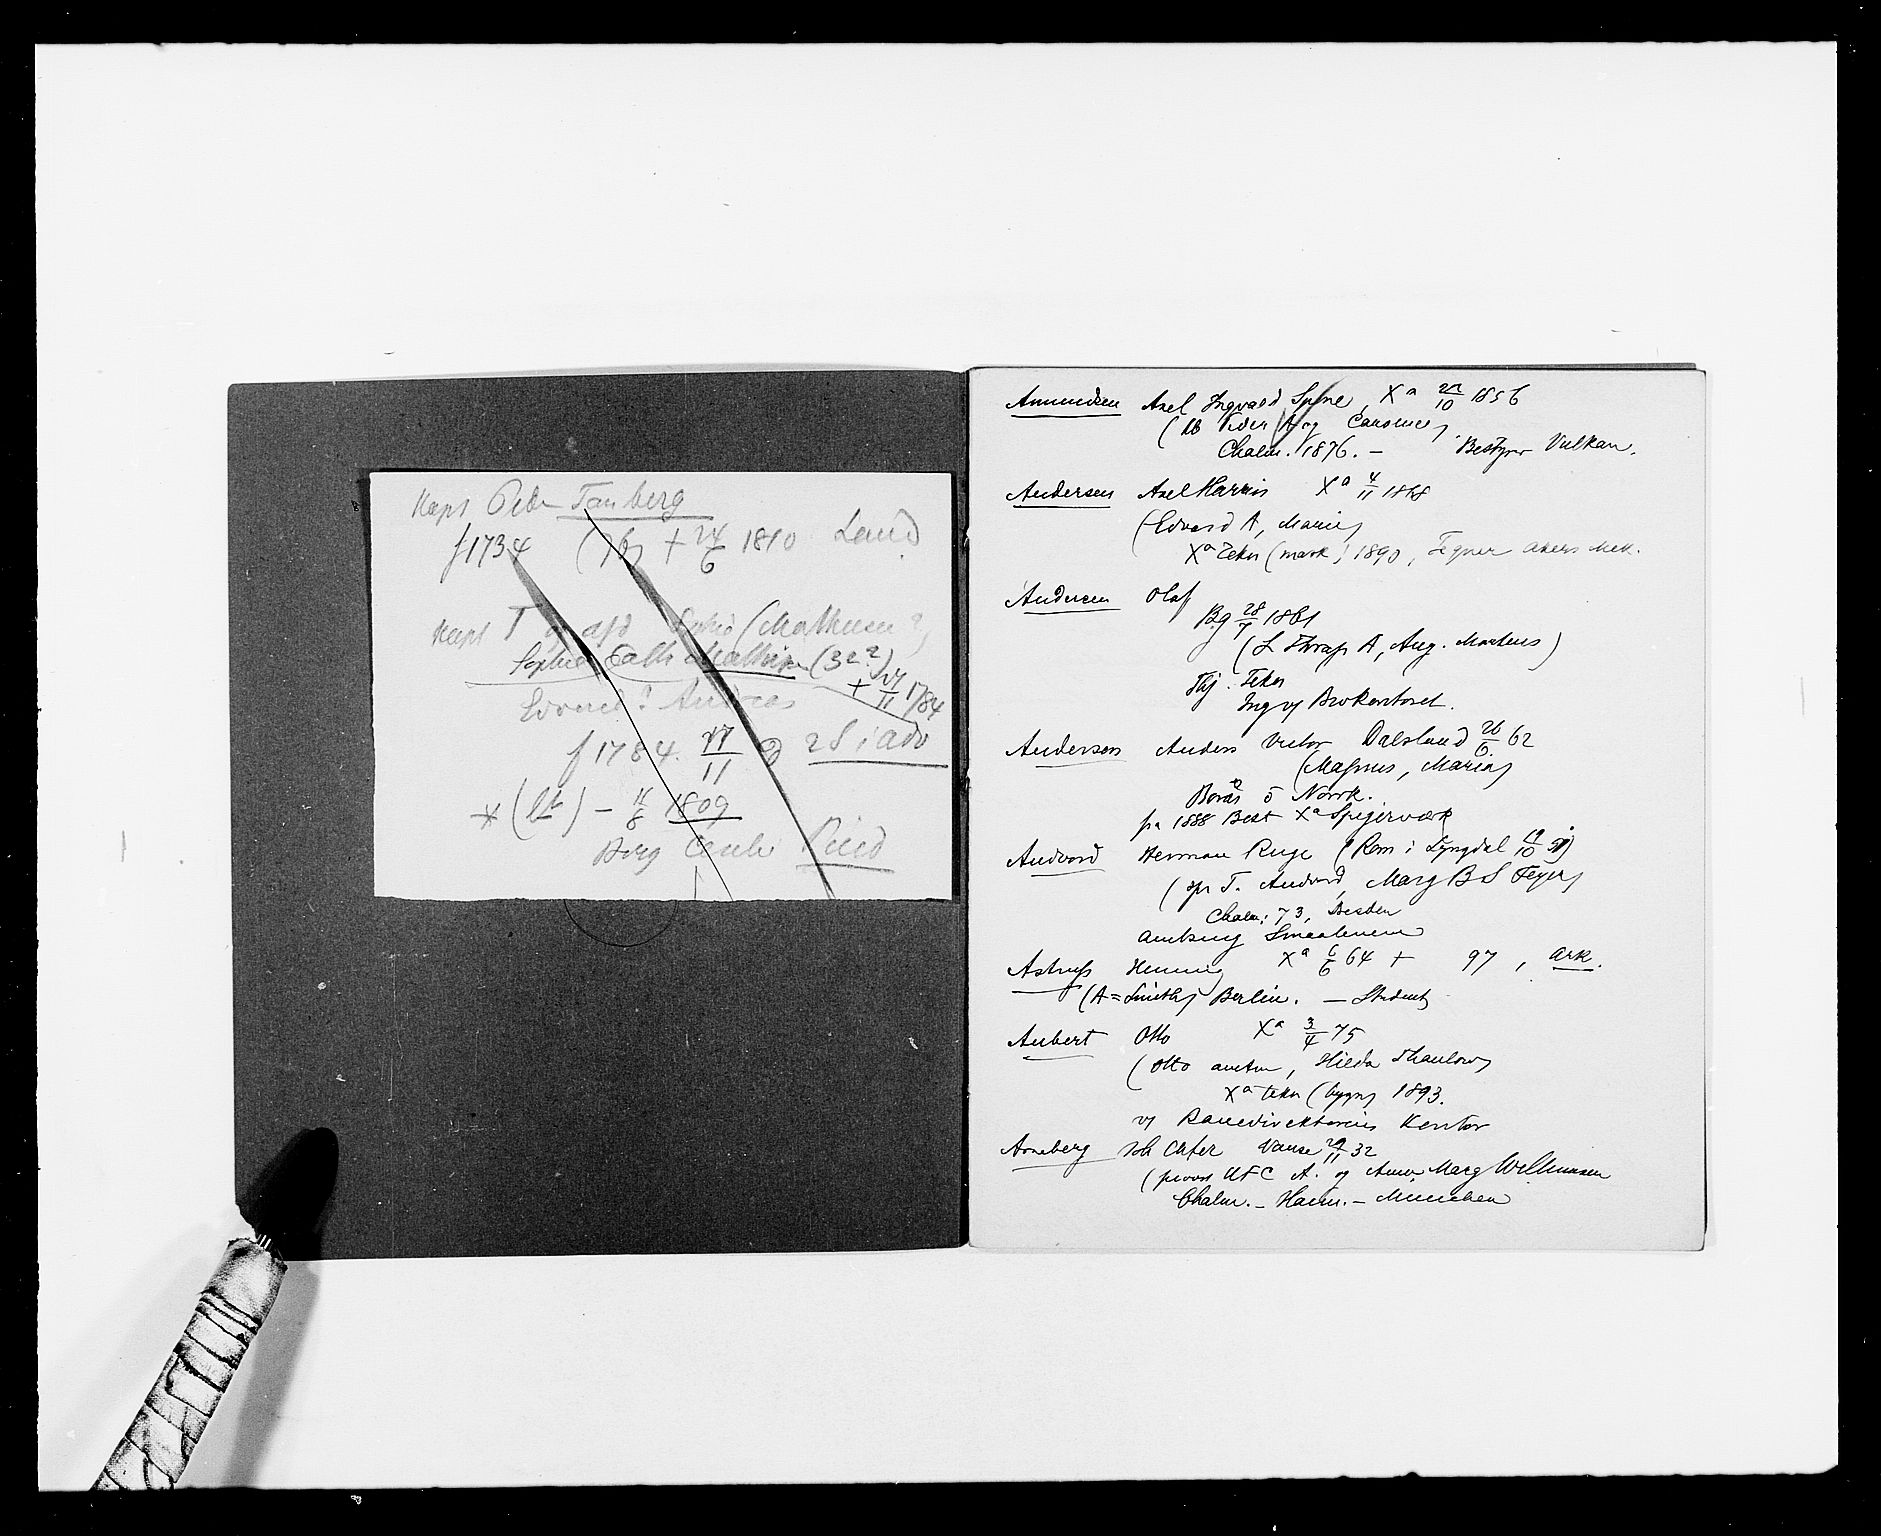 Kapt Peder Tanberg
f 1734 (76) + 24/6 1810 Land
Kapt T og afd Sophie (Mathiesen?)
Sophie Cath Mathis (32?)
+ 27/11 1784
Edvard? Andreas
f 1784. 27/11 28 i adv
* (lt) - 11/8 1809
Borg Cecilie Piced
Amundsen Axel Ingvald Xa 10 1856
og
Chalm. 1876. — Bestyrer Vulkan.
Andersen Axel Harris Xa 4/11 1868
(Edvard A, Marie)
Xa Tekn (mask) 1890, Tegner Akers Mek.
Andersen Olaf
Bg 28/7 1861
(L Thrap A, Aug. Martens)
Thj. Tekn
Ing v/ Brokontoret.
Anderson Anders Victor Dalsland 26/6 62
(Magnus, Maria)
Borås o Norrk.
fra 1888 Best Xa Spigerværk
Andvord Herman Ruge (Rom i Lyngdal 19/10 51)
(spr T. Andvord, Marg B S Feyer)
Chalm: 73, Dresden
amtsing Smaalenene
Astrup Henning Xa 6/6 64 + 97, Ark.
(A = Smith) Berlin. — Student
Aubert Otto Xa 3/4 75
(Otto, Hilda Thaulow)
Xa tekn (bygn) 1893.
v/ Kanaldirektørens Kontor
Arneberg Vanse 29/11 32
(provst A. og Anne Marg Willumsen
Chalm. – Hann. – München